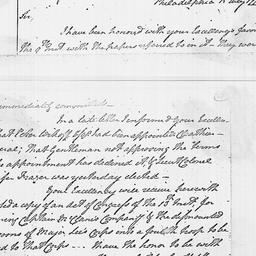 Philadelphia July
Sir,
I have been honored with your Excellency's favor
The 9th Inst with the papers referred to in it. They were
immediately committed
In a late letter I informed your Excellen
that Peter Esqr had been appointed
eral; That Gentleman not approving the terms
appointment has declined it, & Lieut Colonel
Frazer was yesterday elected—
Your Excellency will receive herewith
a copy of an act of Congress of the 13th Inst, for
ing Captain Company & the dismounted
oons of Major Lee's Corps into a fourth troop to be
ed to that Corps — I have the honor to be with